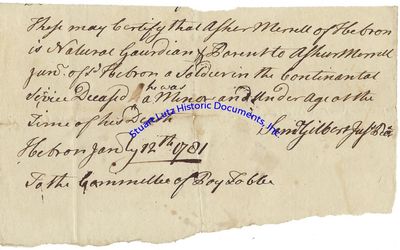 These may Certify that Asher Merrell of Hebron
is Natural Gaurdian & Parent to Asher Merrell
Junr. of sd. Hebron a Soldier in the Continental
Service Deceased he was a Minor and under age at the
Time of his
Saml Gilbert Just. Peace
Hebron Jany 12th 1781
To the Committee of Pay Table
Stuart Lutz Historic Documents, Inc.